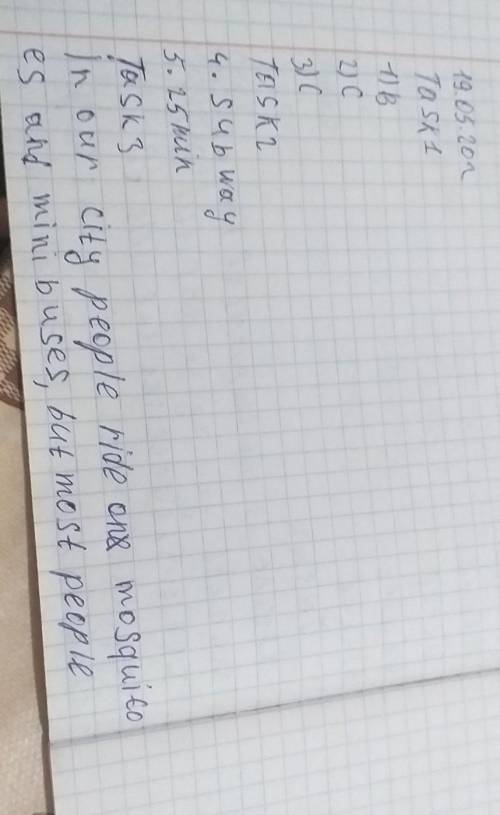 19.05.20
Task 1
1) B
2) C
3) C
Task 2
4. Subway
5. 25 min
Task 3
In our city people ride on mosquito
es and mini buses, but most people